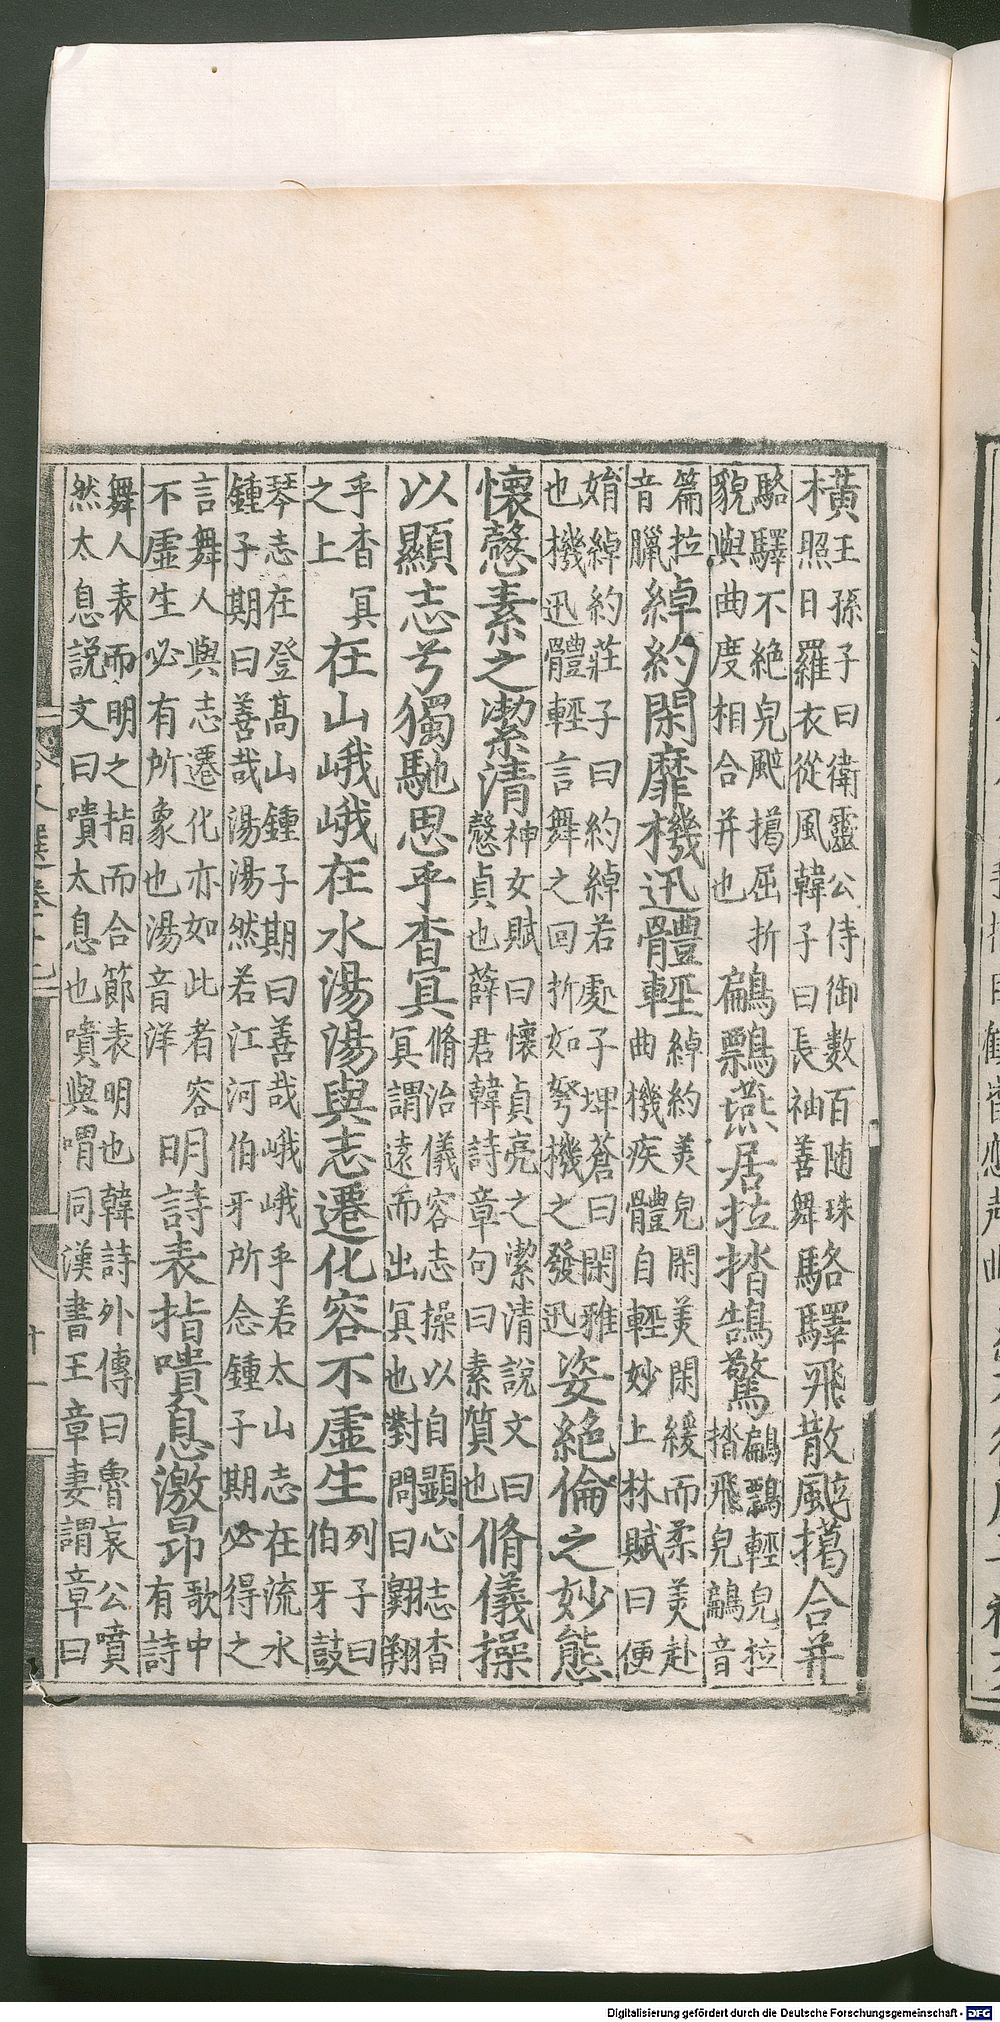 黃王孫子曰衛靈公侍御數百随珠
木照日羅衣從風韓子曰長袖善舞
駱驛飛散颯擖合并
駱驛不絕皃颯擖屈折
貌與曲度相合并也
鶣䴩燕居拉㧺鵠驚
鶣䴩輕皃拉
㧺飛皃鶣音
篇拉
音臘
綽約閑靡機迅體輕
綽約美皃閑美閑緩而柔美赴
曲機疾體自輕妙上林賦曰便
㛹綽約莊子曰約綽若處子埤蒼曰閑雅
也機迅體輕言舞之回折如弩機之發迅
姿絕倫之妙態
懷慤素之潔清
神女賦曰懷貞亮之潔清說文曰
慤貞也薛君韓詩章句曰素質也
脩儀操
以顯志兮獨馳思乎杳冥
脩治儀容志操以自顯心志杳
冥謂遠而出冥也對問曰翱翔
乎杳冥
之上
在山峨峨在水湯湯與志遷化容不虛生
列子曰
伯牙鼓
琴志在登髙山鍾子期曰善哉峨峨乎若太山志在流水
鍾子期曰善哉湯湯然若江河伯牙所念鍾子期必得之
言舞人與志遷化亦如此者容
不虛生必有所象也湯音洋
明詩表指嘳息激昂
歌中
有詩
舞人表而明之指而合節表明也韓詩外傳曰魯哀公嘳
然太息説文曰嘳太息也嘳與喟同漢書王章妻謂章曰
十一
Digitalisierung gefördert durch die Deutsche Forschungsgemeinschaft - DFG